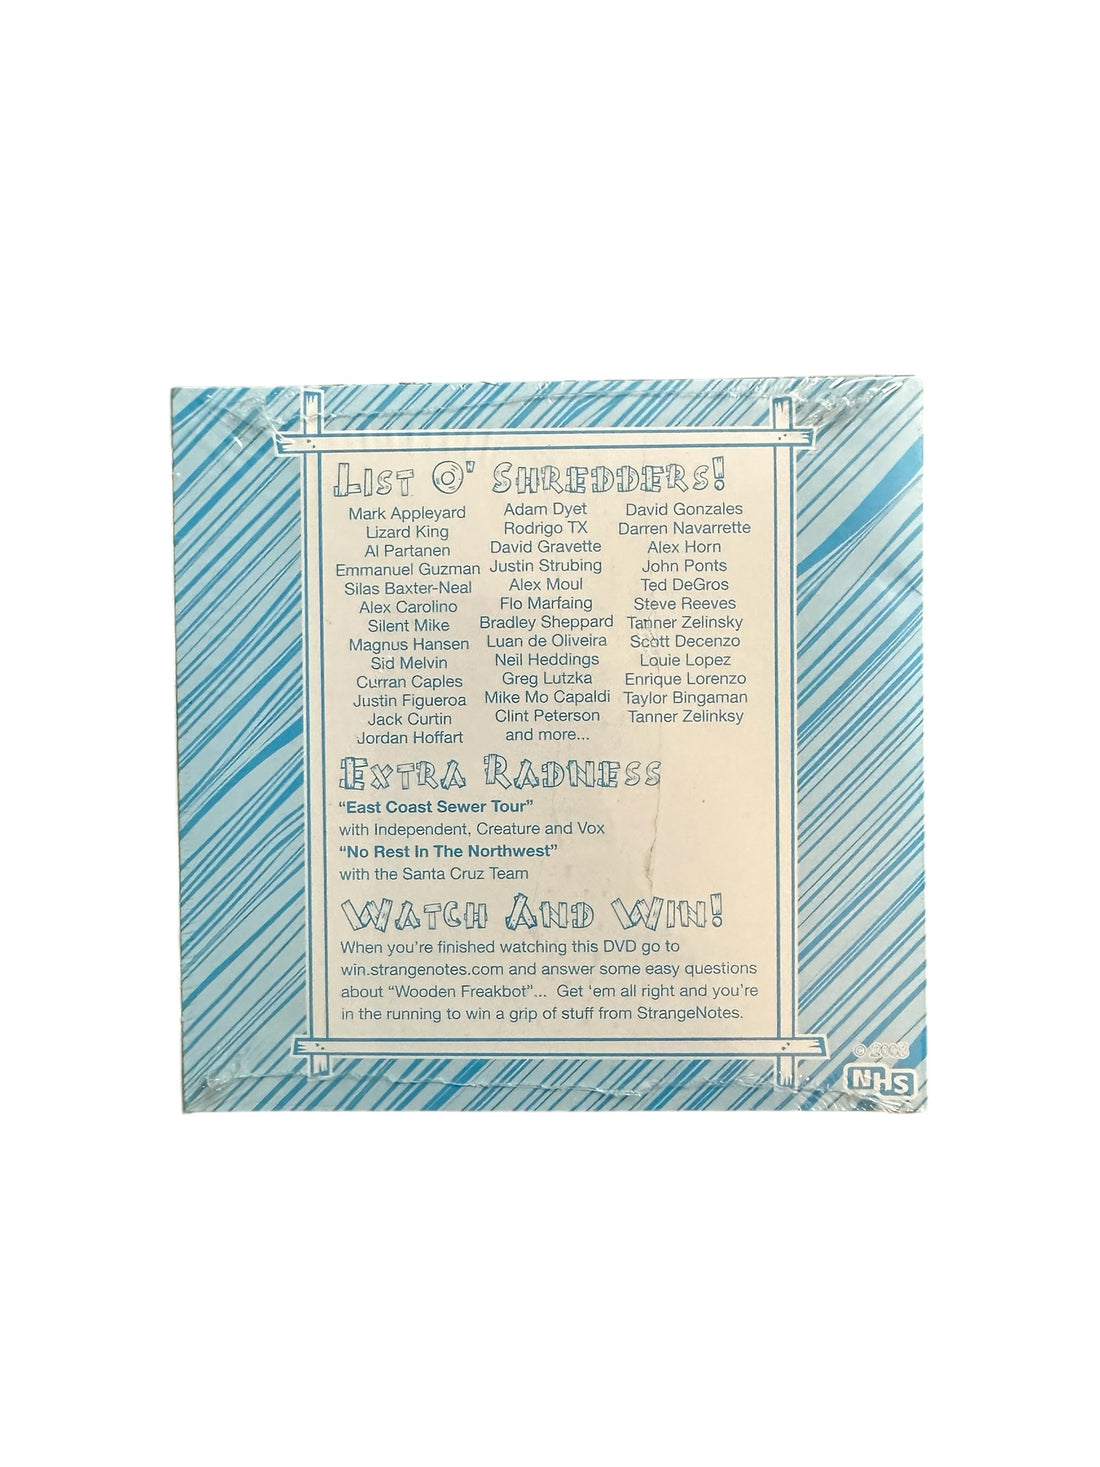 LIST O' SHREDDERS!
Mark Appleyard
Lizard King
Al Partanen
Emmanuel Guzman
Silas Baxter-Neal
Alex Carolino
Silent Mike
Magnus Hansen
Sid Melvin
Curran Caples
Justin Figueroa
Jack Curtin
Jordan Hoffart
Adam Dyet
Rodrigo TX
David Gravette
Justin Strubing
Alex Moul
Flo Marfaing
Bradley Sheppard
Luan de Oliveira
Neil Heddings
Greg Lutzka
Mike Mo Capaldi
Clint Peterson
and more...
David Gonzales
Darren Navarrette
Alex Horn
John Ponts
Ted DeGros
Steve Reeves
Tanner Zelinsky
Scott Decenzo
Louie Lopez
Enrique Lorenzo
Taylor Bingaman
Tanner Zelinksy
EXTRA RADNESS
“East Coast Sewer Tour”
with Independent, Creature and Vox
“No Rest In The Northwest”
with the Santa Cruz Team
WATCH AND WIN!
When you're finished watching this DVD go to
win.strangenotes.com and answer some easy questions
about “Wooden Freakbot”... Get ‘em all right and you're
in the running to win a grip of stuff from StrangeNotes.
NHS